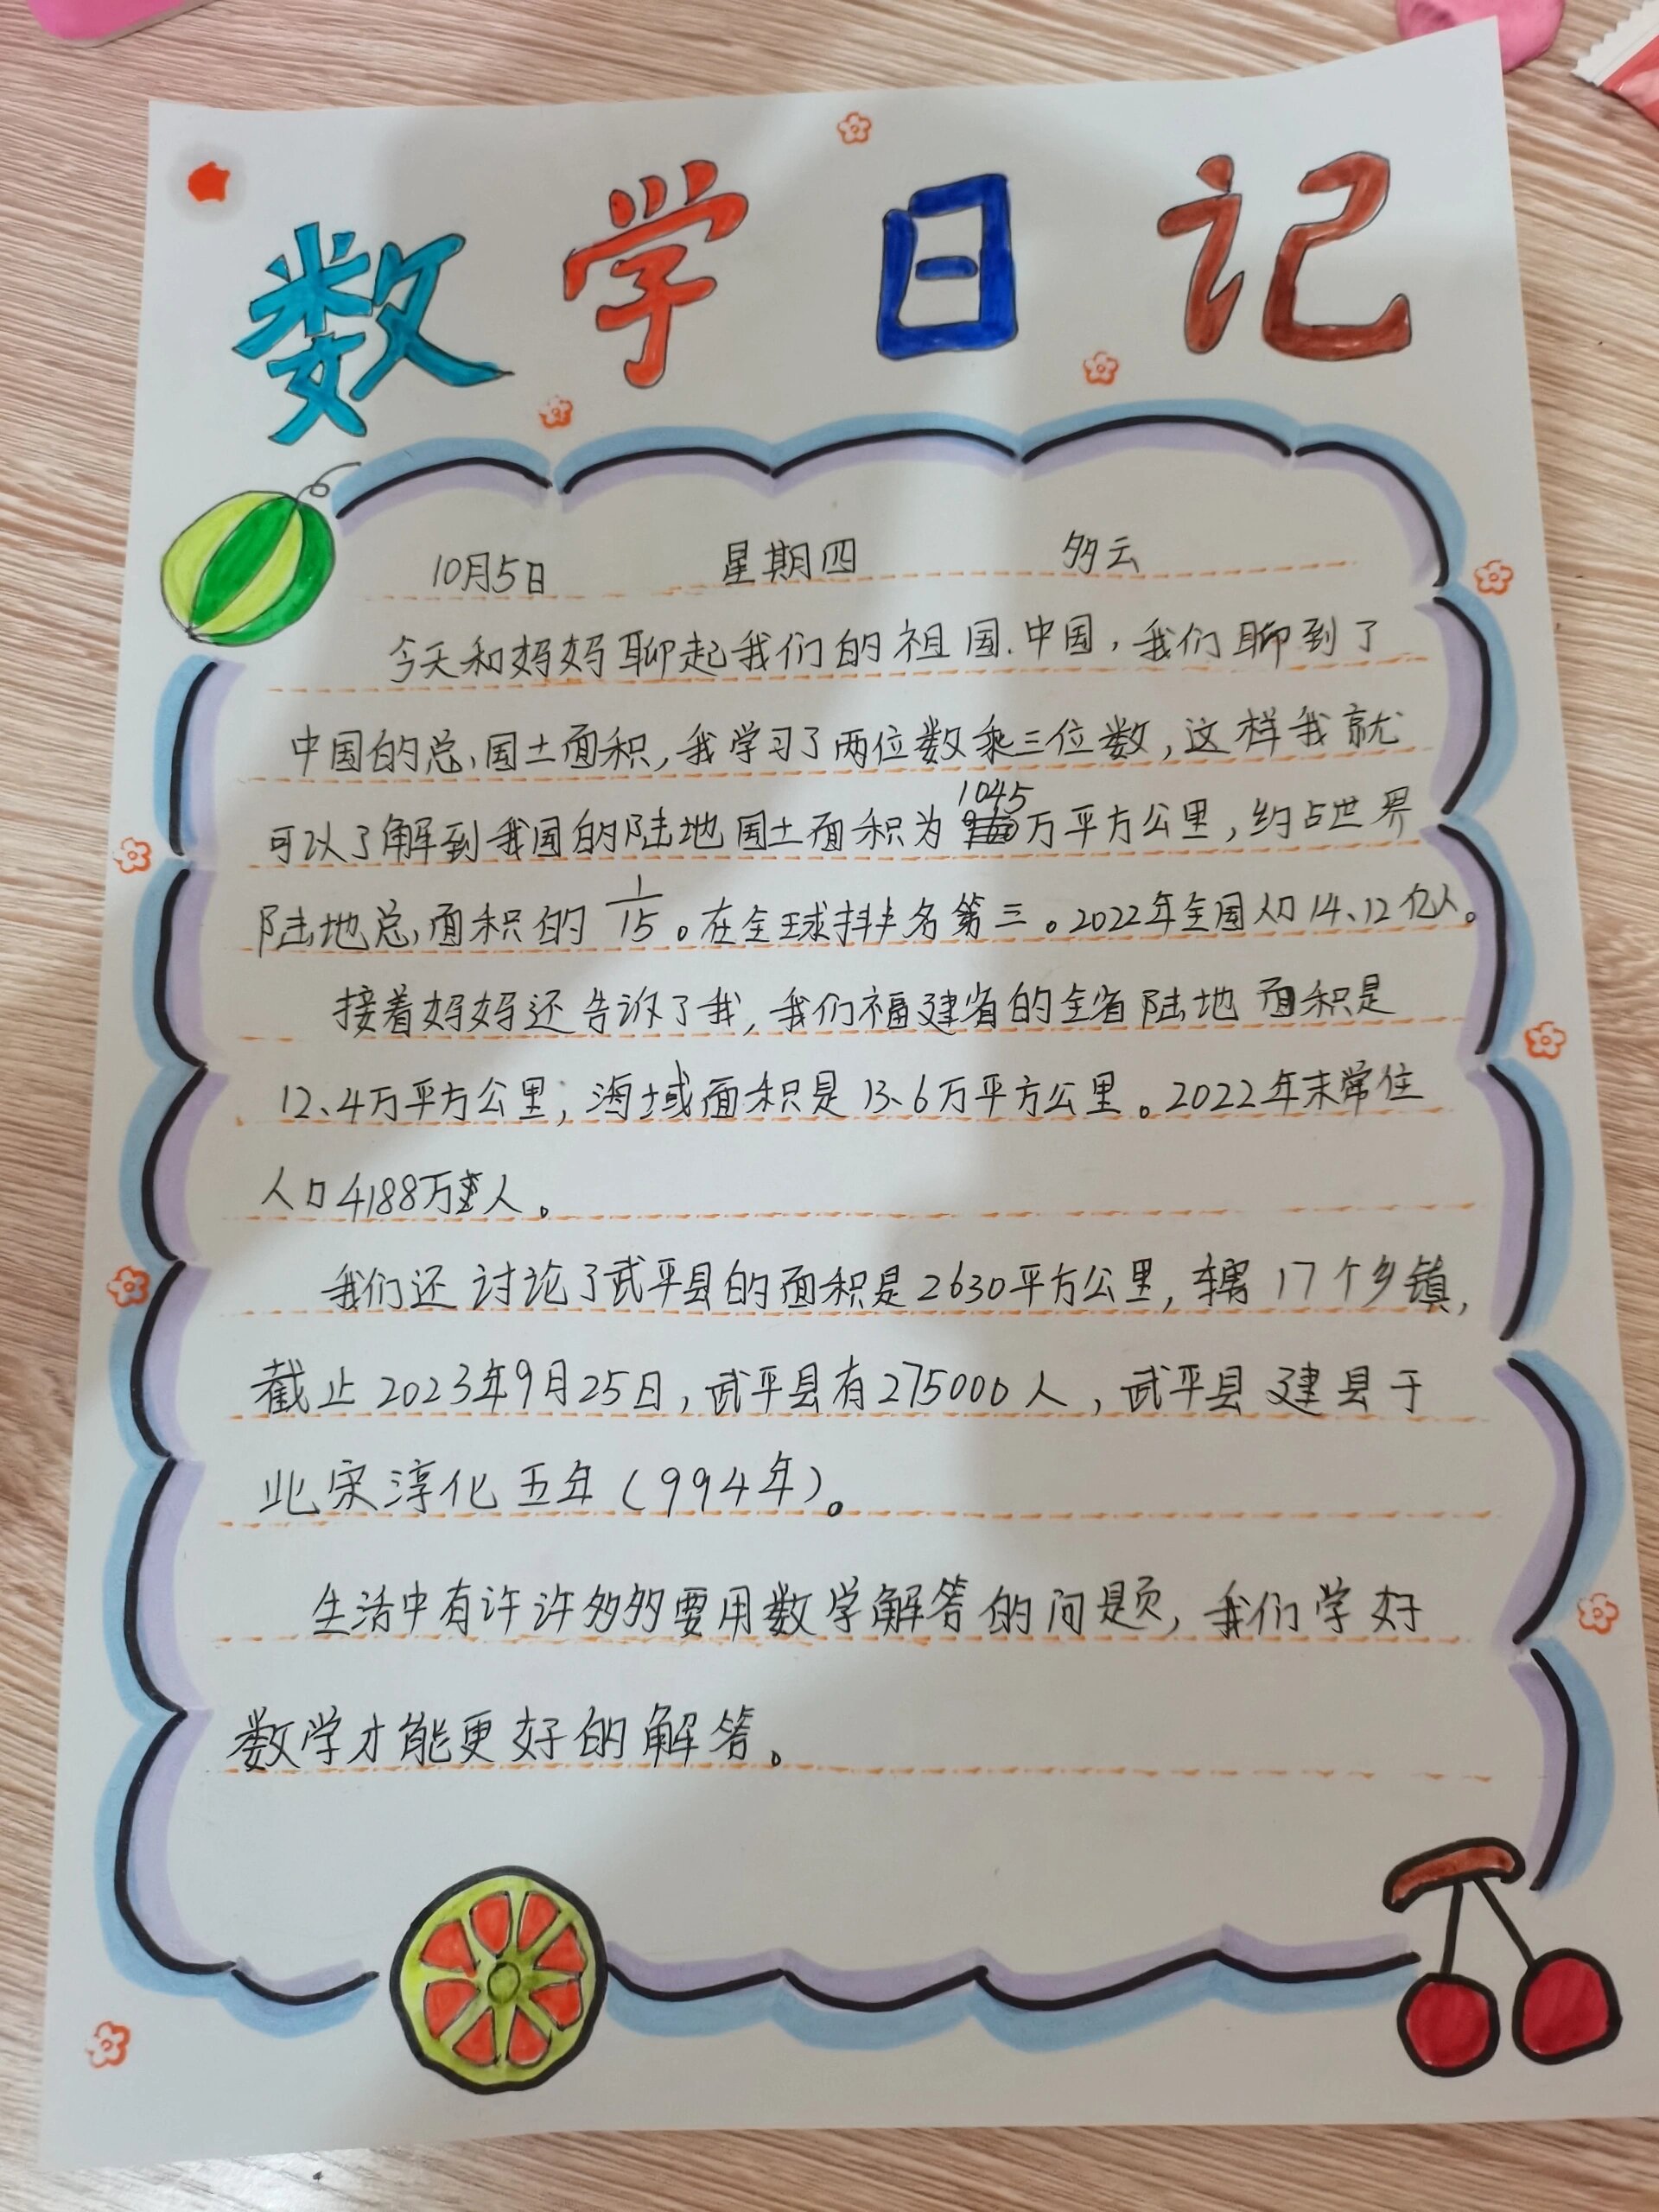 数学日记
10月5日 星期四 多云
今天和妈妈聊起我们的祖国.中国,我们聊到了
中国的总国土面积,我学习了两位数乘三位数,这样我就
可以了解到我国的陆地国土面积为1045万平方公里,约占世界
陆地总面积的1/15。在全球排名第三。2022年全国人口14、12亿人。
接着妈妈还告诉了我,我们福建省的全省陆地面积是
12、4万平方公里,海域面积是13、6万平方公里。2022年末常住
人口4188万人。
我们还讨论了武平县的面积是2630平方公里,辖17个乡镇,
截止2023年9月25日,武平县有275000人,武平县建县于
北宋淳化五年(994年)。
生活中有许许多多要用数学解答的问题,我们学好
数学才能更好的解答。